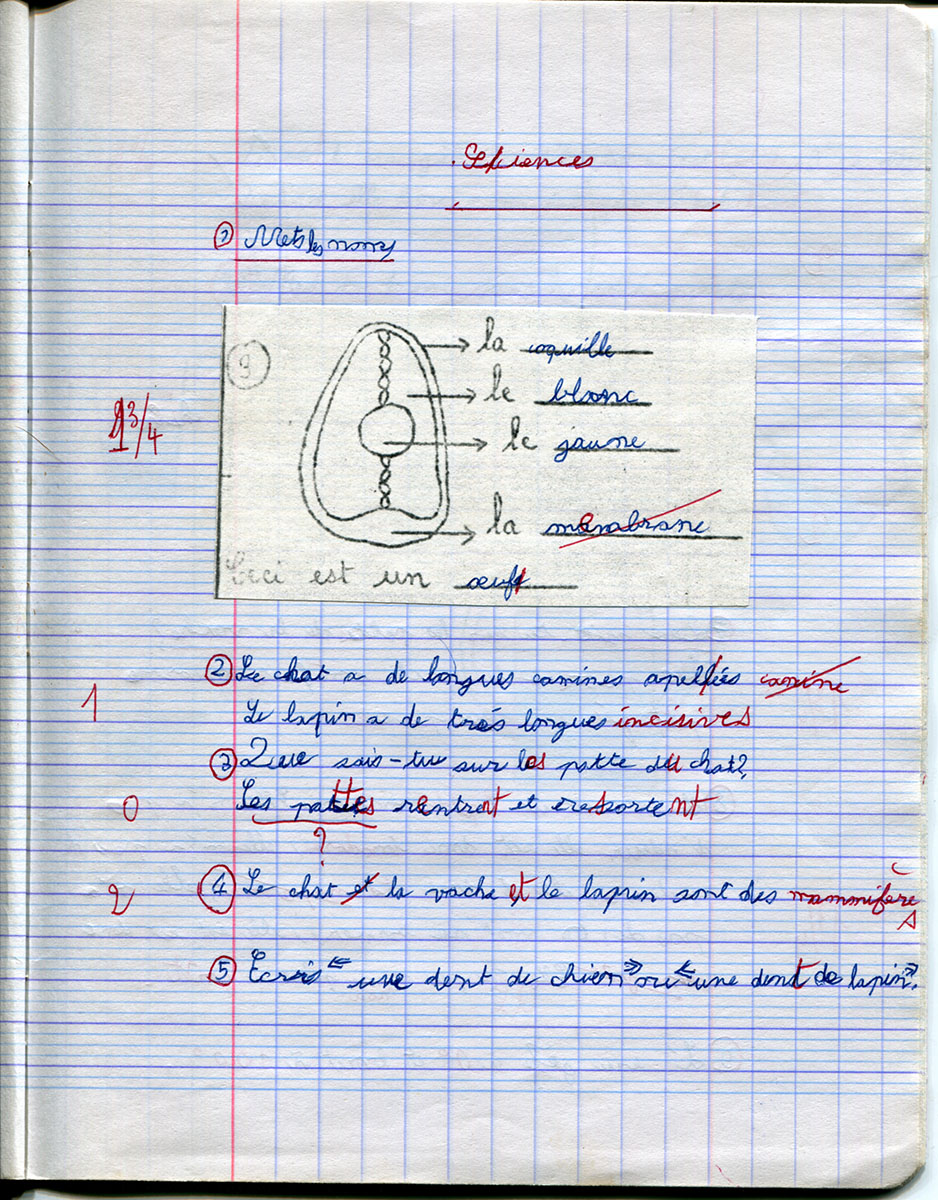 Sciences
① Mets les noms
9
la coquille
le blanc
1 3/4
le jaune
la membrane
Ceci est un œuf
② Le chat a de longues canines apellées canine
1
Le lapin a de très longues incisives
③ Que sais-tu sur les patte du chat?
Les pattes rentrent et ressortent
0
?
④ Le chat et la vache et le lapin sont des mammifère
2
s
⑤ Ecris « une dent de chien » ou « une dent de lapin ».